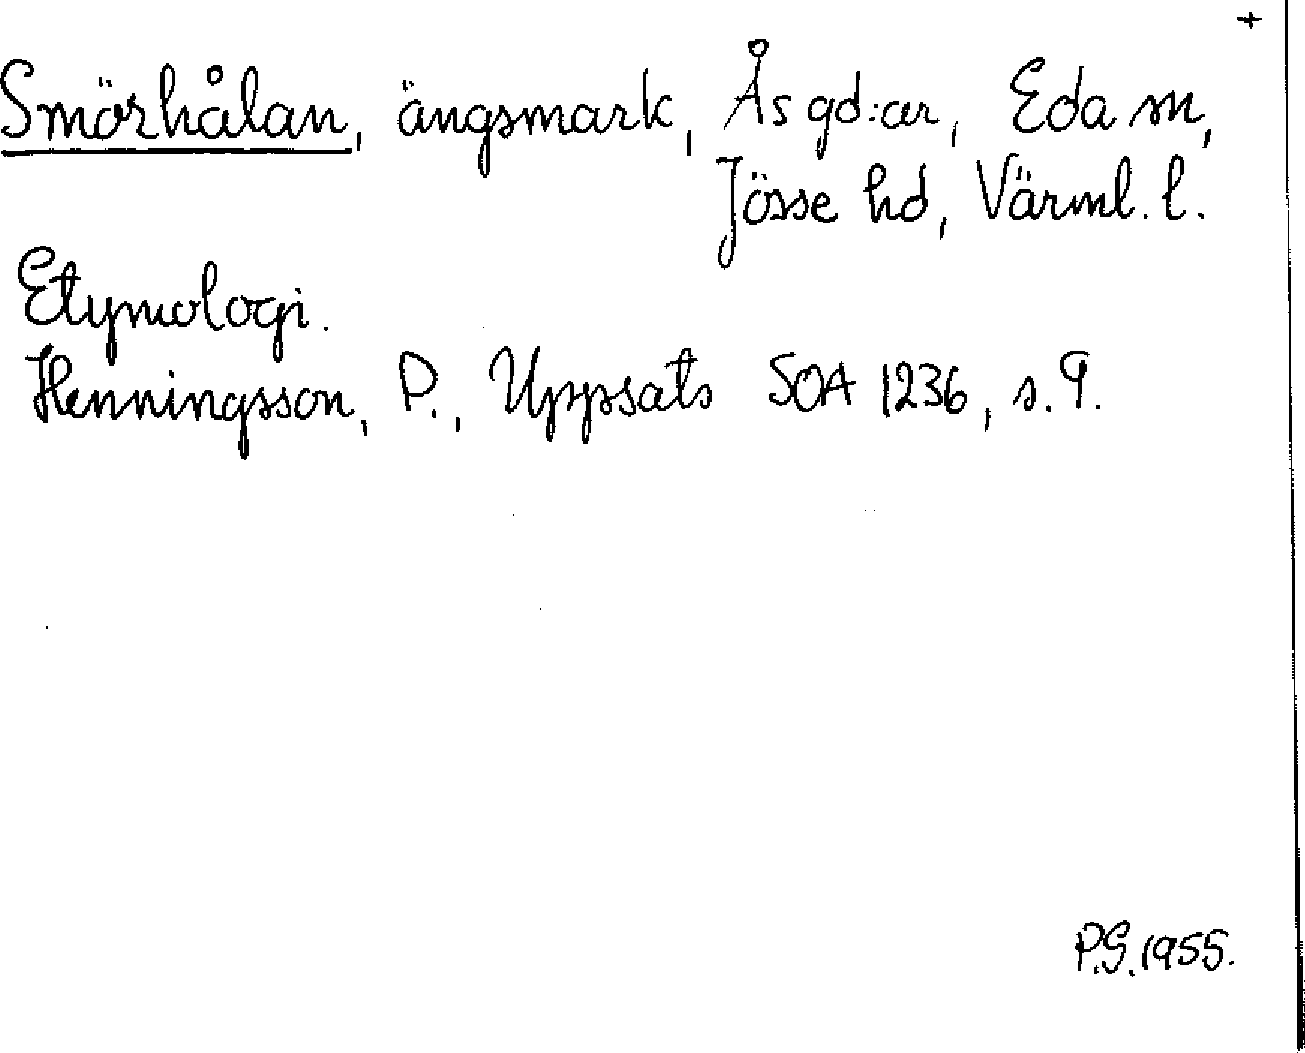 +
Smörhålan, ängsmark, Ås gd:ar, Eda sn,
Jösse hd, Värml. l.
Etymologi.
Henningsson, P., Uppsats SOA 1236, s. 9.
P.G. 1955.